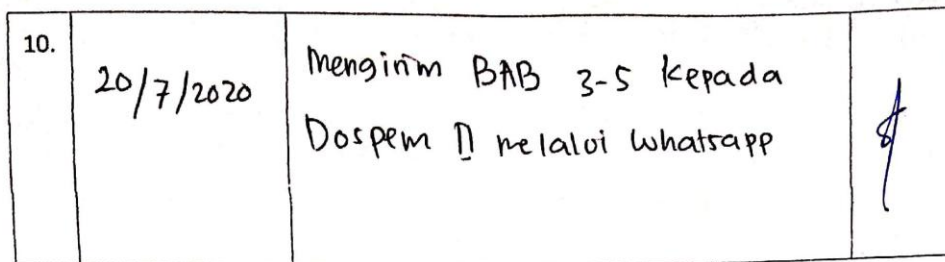 10.
20/7/2020
Mengirim BAB 3-5 kepada
Dospem II melalui whatsapp